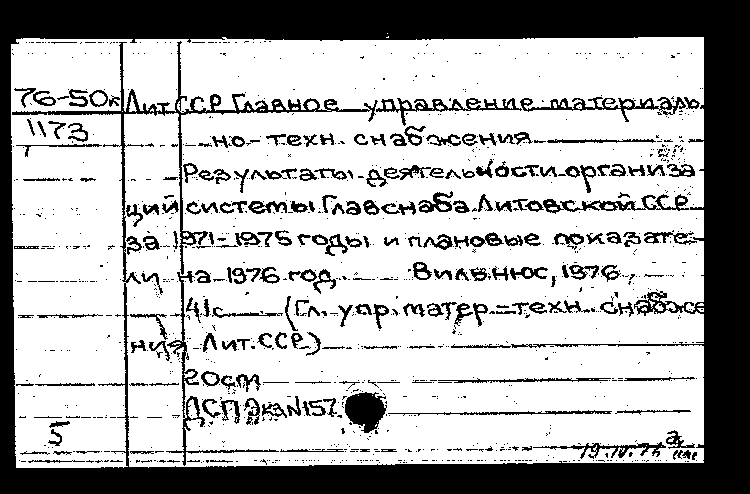 76-50к Лит ССР. Главное управление материаль
1173 но-техн. снабжения
Результаты деятельности организа-
ций системы Главснаба Литовской ССР
за 1971-1975 годы и плановые показате-
ли на 1976 год. Вильнюс, 1976.
41с (Гл. упр. матер.-техн. снабже
ния Лит. ССР.)
20cm
ДСП Экз N157
5
19.IV.76